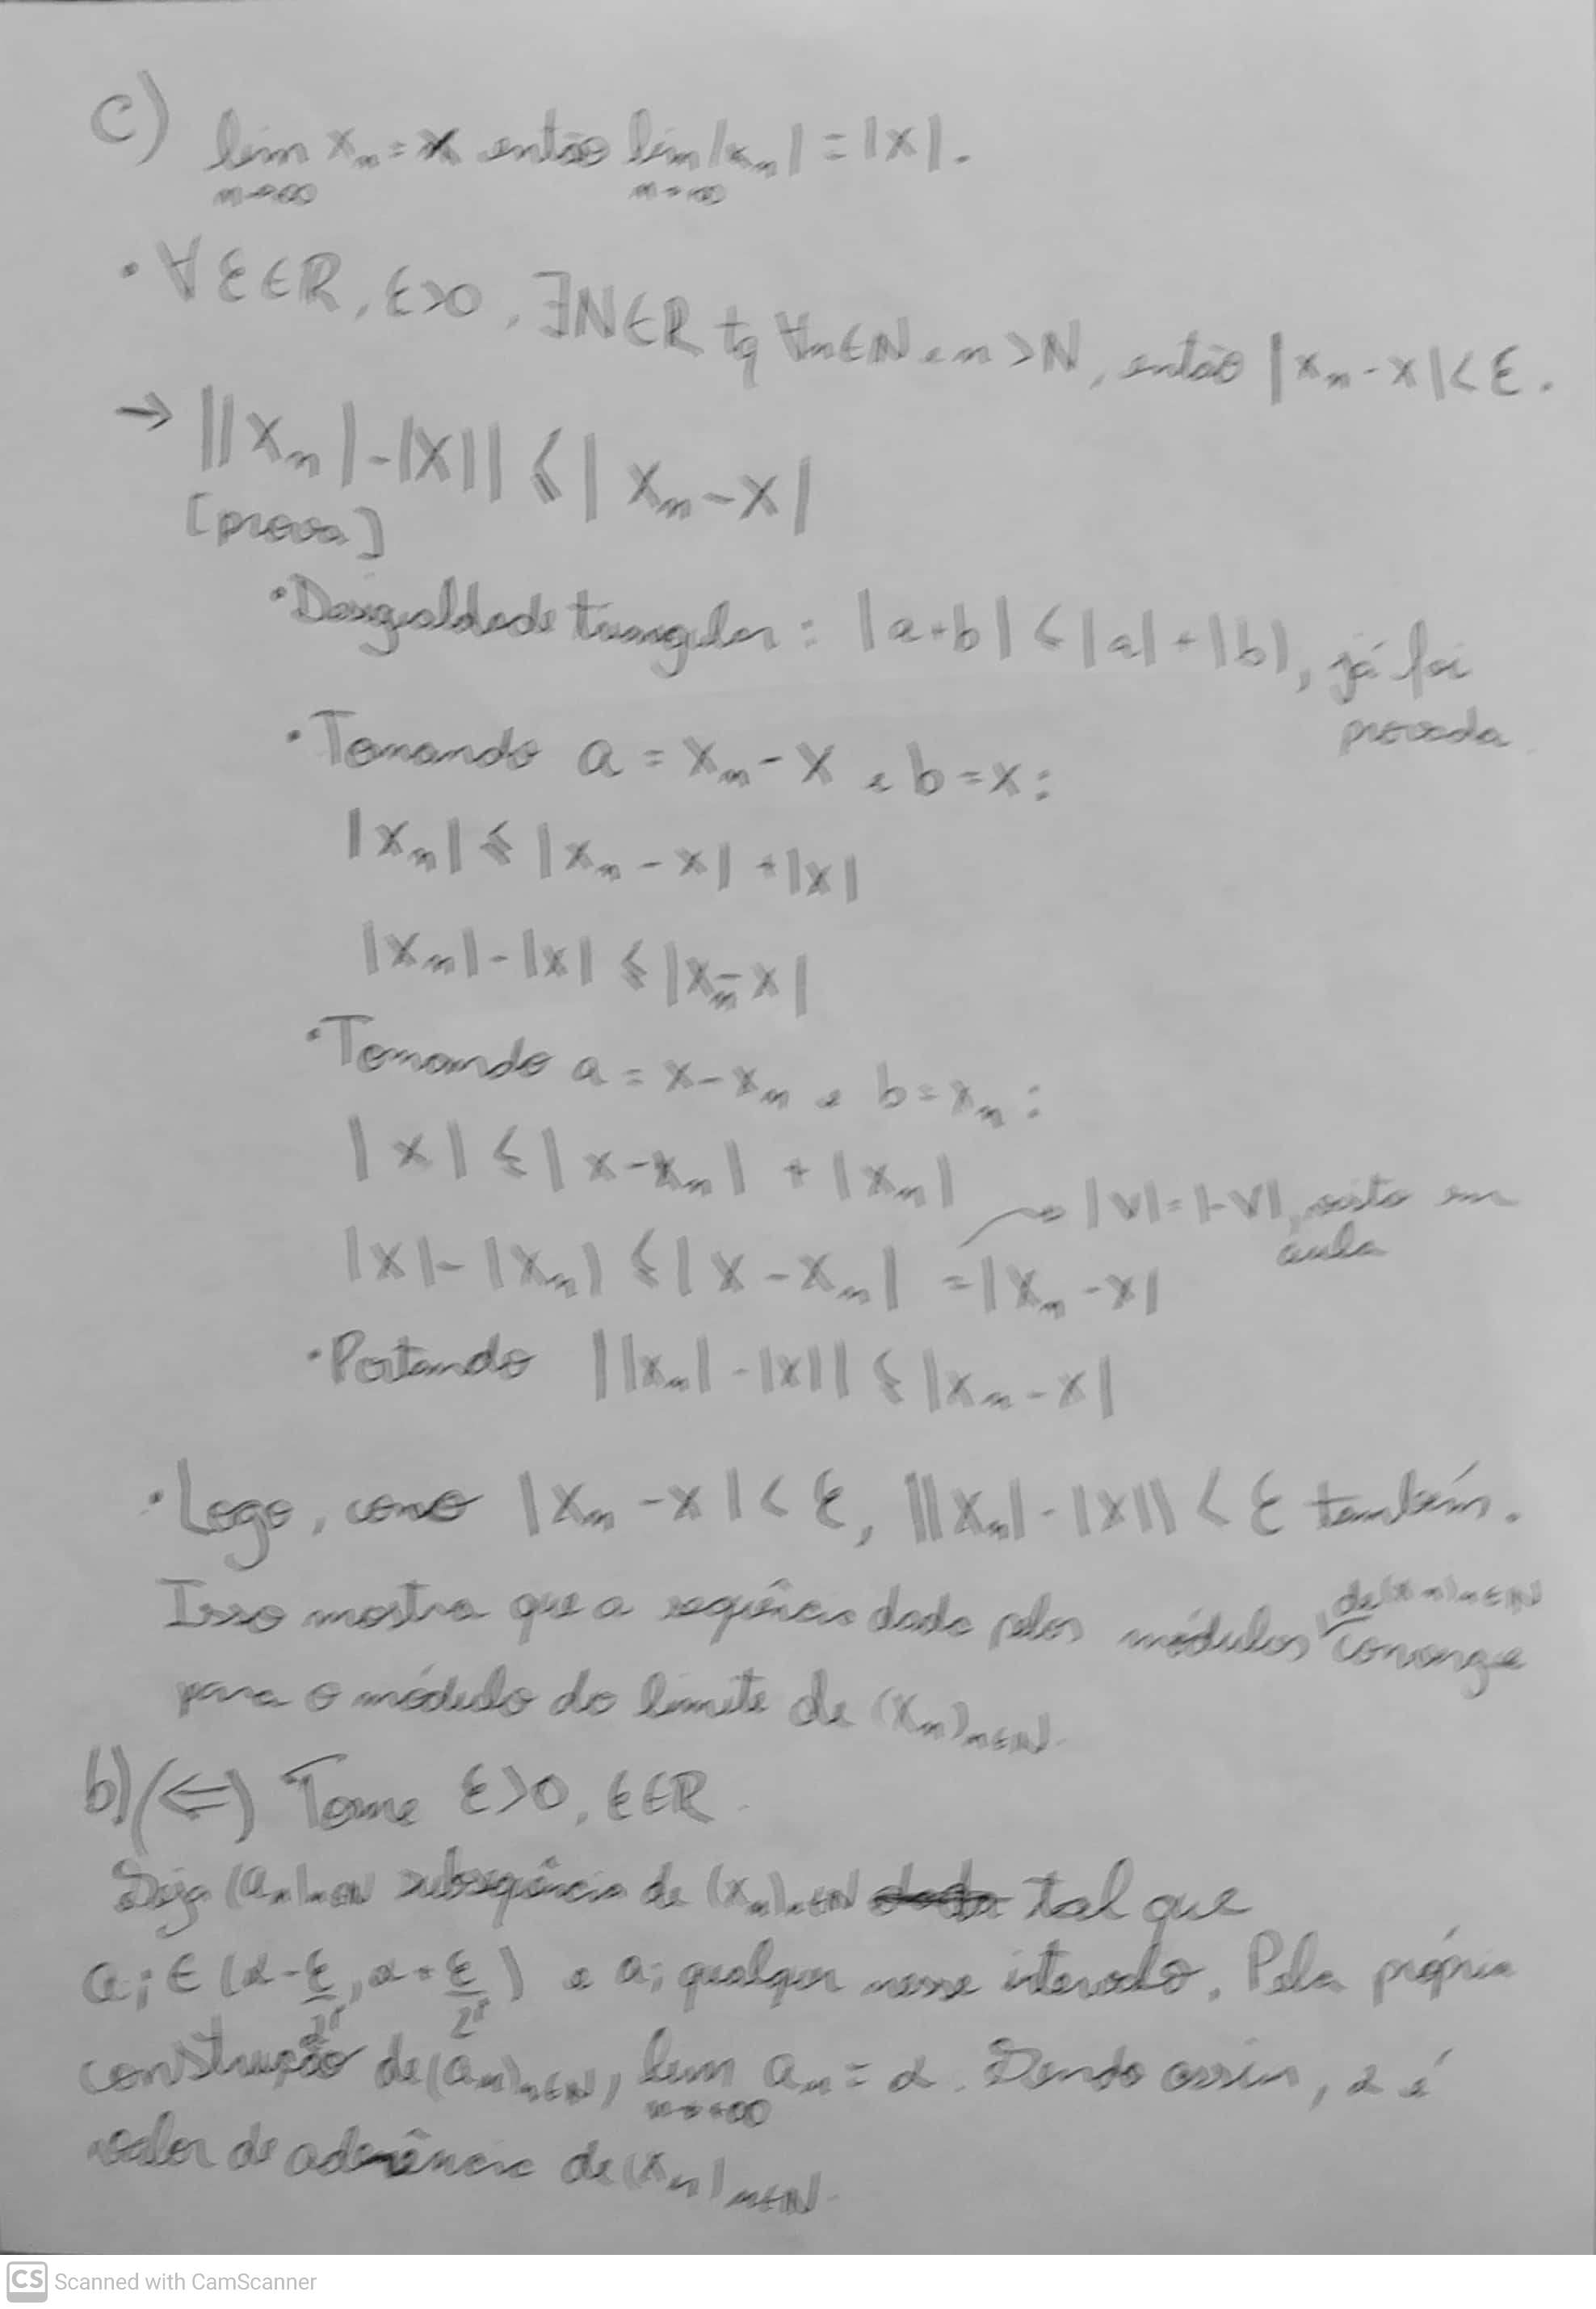 c) lim x_n = x então lim |x_n| = |x|.
n→∞ n→∞
• ∀ε∈ℝ, ε>0, ∃N∈ℝ tq ∀n∈ℕ e n>N, então |x_n - x| < ε.
→ ||x_n| - |x|| ≤ |x_n - x|
[prova]
• Desigualdade triangular: |a+b| < |a| + |b|, já foi
provada
• Tomando a = x_n - x e b = x:
|x_n| ≤ |x_n - x| + |x|
|x_n| - |x| ≤ |x_n - x|
• Tomando a = x - x_n e b = x_n:
|x| ≤ |x - x_n| + |x_n|
→ |v| = |-v|, visto em
aula
|x| - |x_n| ≤ |x - x_n| = |x_n - x|
• Portando ||x_n| - |x|| ≤ |x_n - x|
• Logo, como |x_n - x| < ε, ||x_n| - |x|| < ε também.
Isso mostra que a sequência dada pelos módulos de (x_n)_{n∈ℕ} converge
para o módulo do limite de (x_n)_{n∈ℕ}.
b) (⇐) Tome ε>0, ε∈ℝ.
Seja (a_n)_{n∈ℕ} subsequência de (x_n)_{n∈ℕ} tal que
a_i ∈ (α - ε/2^i, α + ε/2^i) e a_i qualquer nesse intervalo. Pela própria
construção de (a_n)_{n∈ℕ}, lim a_n = α. Sendo assim, α é
n→+∞
valor de aderência de (x_n)_{n∈ℕ}.
CS Scanned with CamScanner